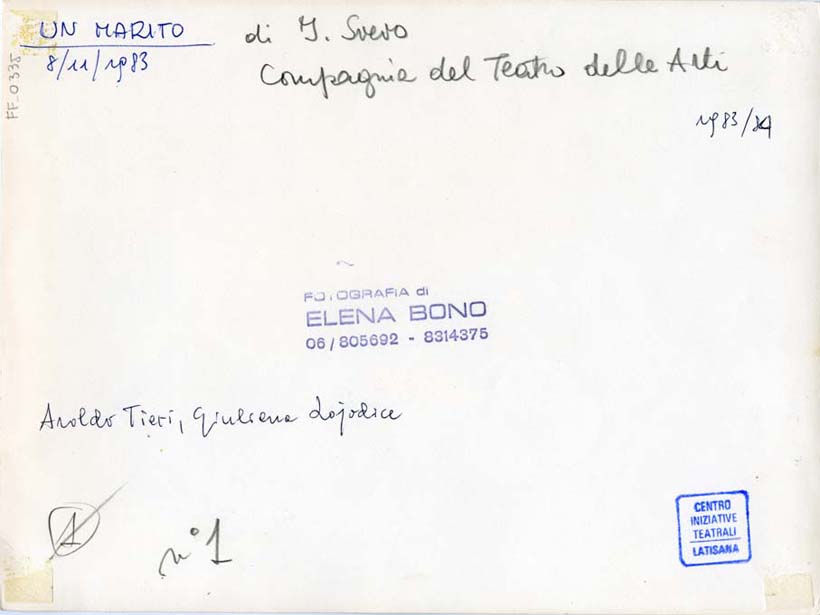 UN MARITO
8/11/1983
di I. Svevo
Compagnia del Teatro delle Arti
1983/84
FF_0335
FOTOGRAFIA di
ELENA BONO
06/805692 - 8314375
Aroldo Tieri, Giuliana Lojodice
1
n°1
CENTRO
INIZIATIVE
TEATRALI
LATISANA